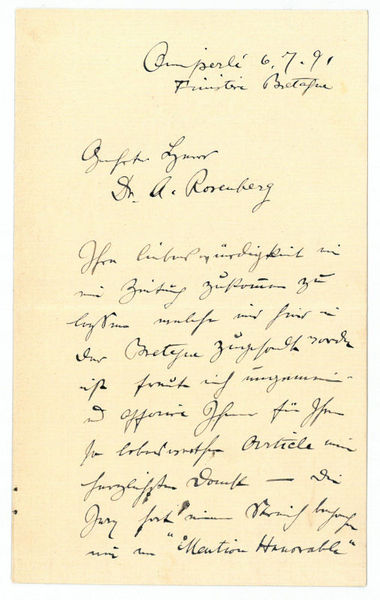 Quimperlé 6.7.91
Finistère Bretagne
Geehrter Herr
Dr. A. Rosenberg
Ihre liebenswürdigkeit
Zeitung zukommen zu
lassen welche mir hier in
der Bretagne zugesandt worden
ist freut mich ungemein
Ihnen für Ihren
so lobenswerthen Article
herzlichsten Dank — Die
Jury hat einen Streich
"Mention Honorable"